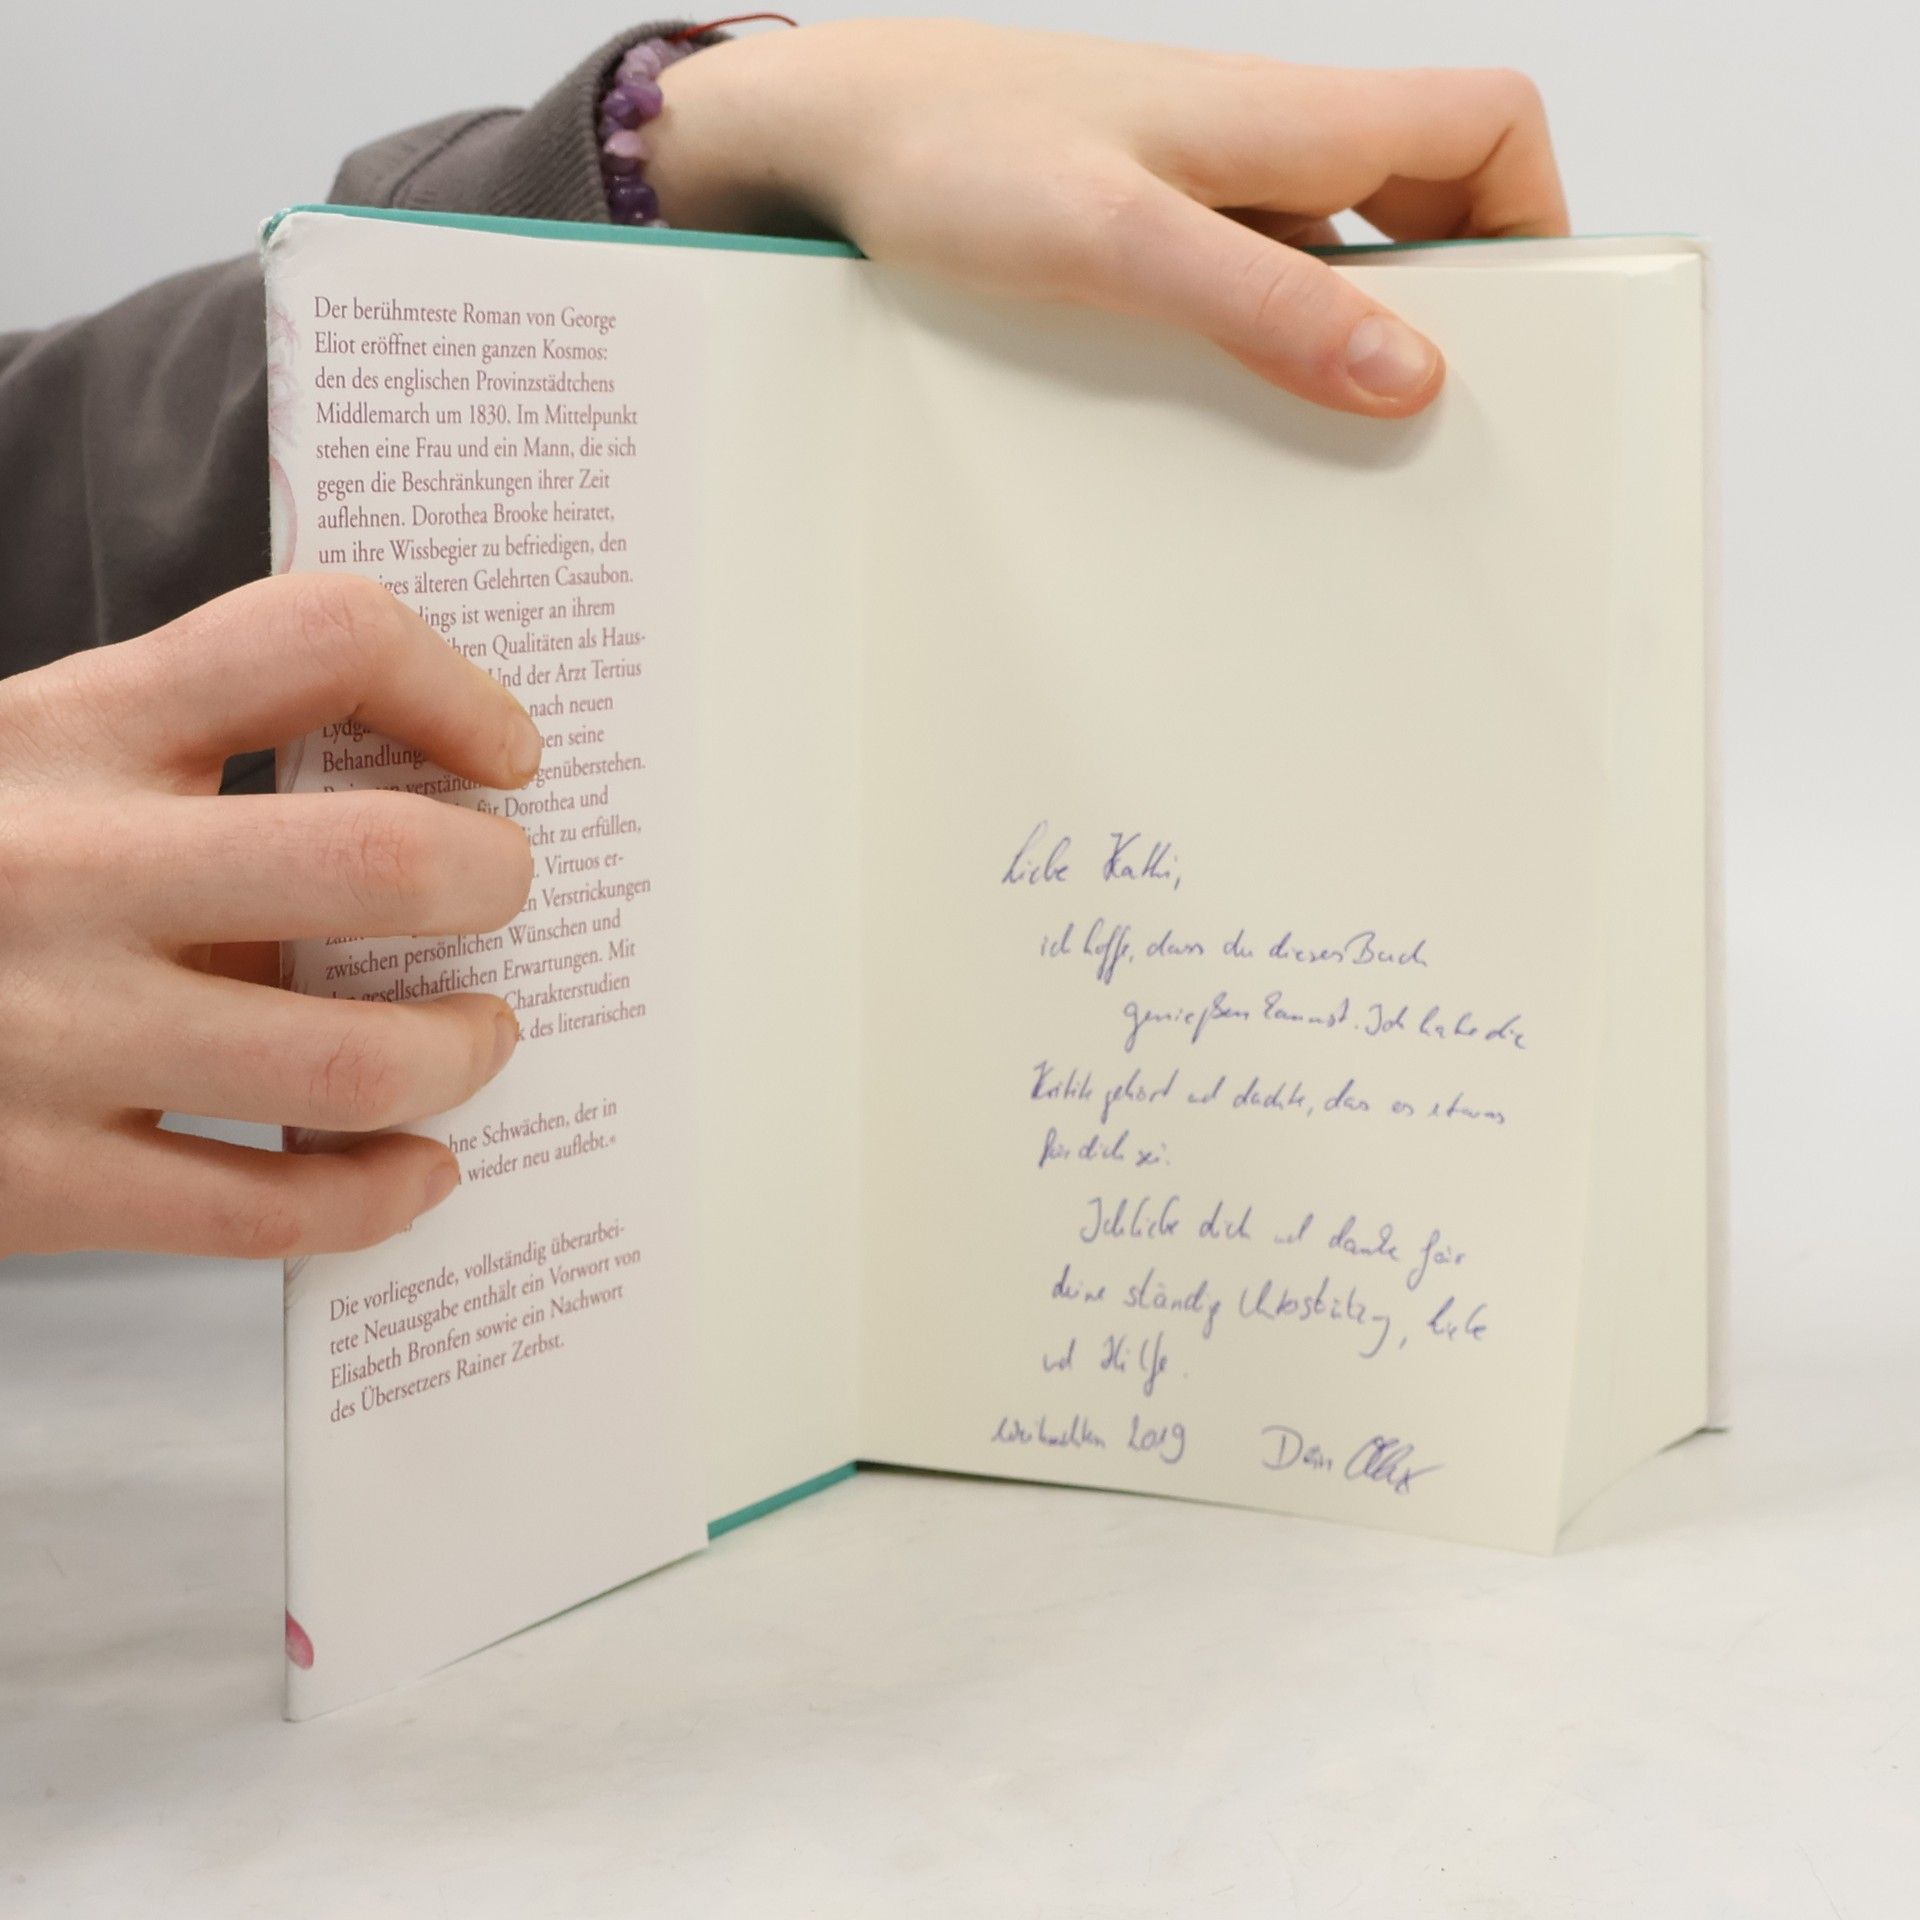 Der berühmteste Roman von George
Eliot eröffnet einen ganzen Kosmos:
den des englischen Provinzstädtchens
Middlemarch um 1830. Im Mittelpunkt
stehen eine Frau und ein Mann, die sich
gegen die Beschränkungen ihrer Zeit
auflehnen. Dorothea Brooke heiratet,
um ihre Wissbegier zu befriedigen, den
älteren Gelehrten Casaubon.
ist weniger an ihrem
Qualitäten als Haus-
Und der Arzt Tertius
nach neuen
seine
für Dorothea und
zu erfüllen,
Virtuos er-
Verstrickungen
zwischen persönlichen Wünschen und
gesellschaftlichen Erwartungen. Mit
Charakterstudien
des literarischen
Schwächen, der in
wieder neu auflebt.«
Die vorliegende, vollständig überarbei-
tete Neuausgabe enthält ein Vorwort von
Elisabeth Bronfen sowie ein Nachwort
des Übersetzers Rainer Zerbst.
Liebe Kathi,
ich hoffe, dass du dieses Buch
genießen kannst. Ich habe die
Kritik gehört und dachte, dass es etwas
für dich sei.
Ich liebe dich und danke für
deine ständig Unterstützung, Liebe
und Hilfe.
Weihnachten 2019 Dein